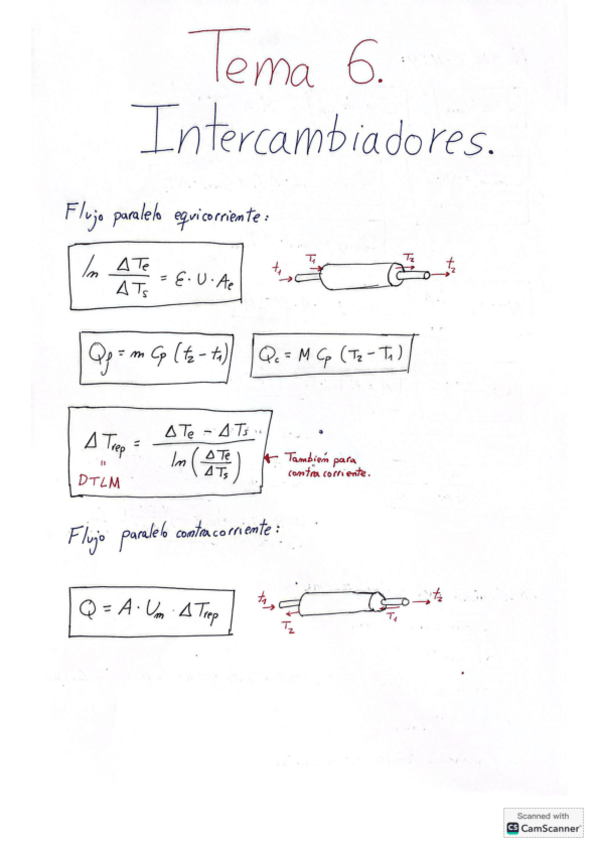 Tema 6.
Intercambiadores.
Flujo paralelo equicorriente:
ln ΔTe/ΔTs = ε · U · Ae
t1 T1 T2 t2
Qf = m Cp (t2 - t1)
Qc = M Cp (T2 - T1)
ΔTrep = (ΔTe - ΔTs) / ln(ΔTe/ΔTs)
"
DTLM
← También para
contracorriente.
Flujo paralelo contracorriente:
Q = A · Um · ΔTrep
t1 T2 T1 t2
Scanned with
CS CamScanner